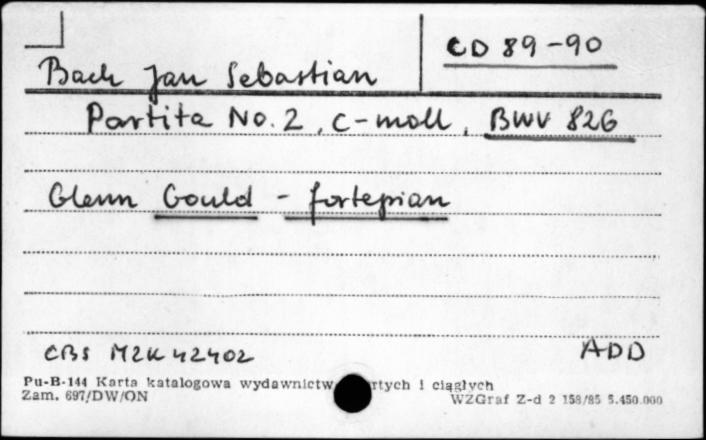 CD 89-90
Bach Jan Sebastian
Partita No. 2, c-moll, BWV 826
Glenn Gould - fortepian
CBS M2K 42402 ADD
Pu-B-144 Karta katalogowa wydawnictw i ciągłych
Zam. 697/DW/ON WZGraf Z-d 2 158/85 5.450.000